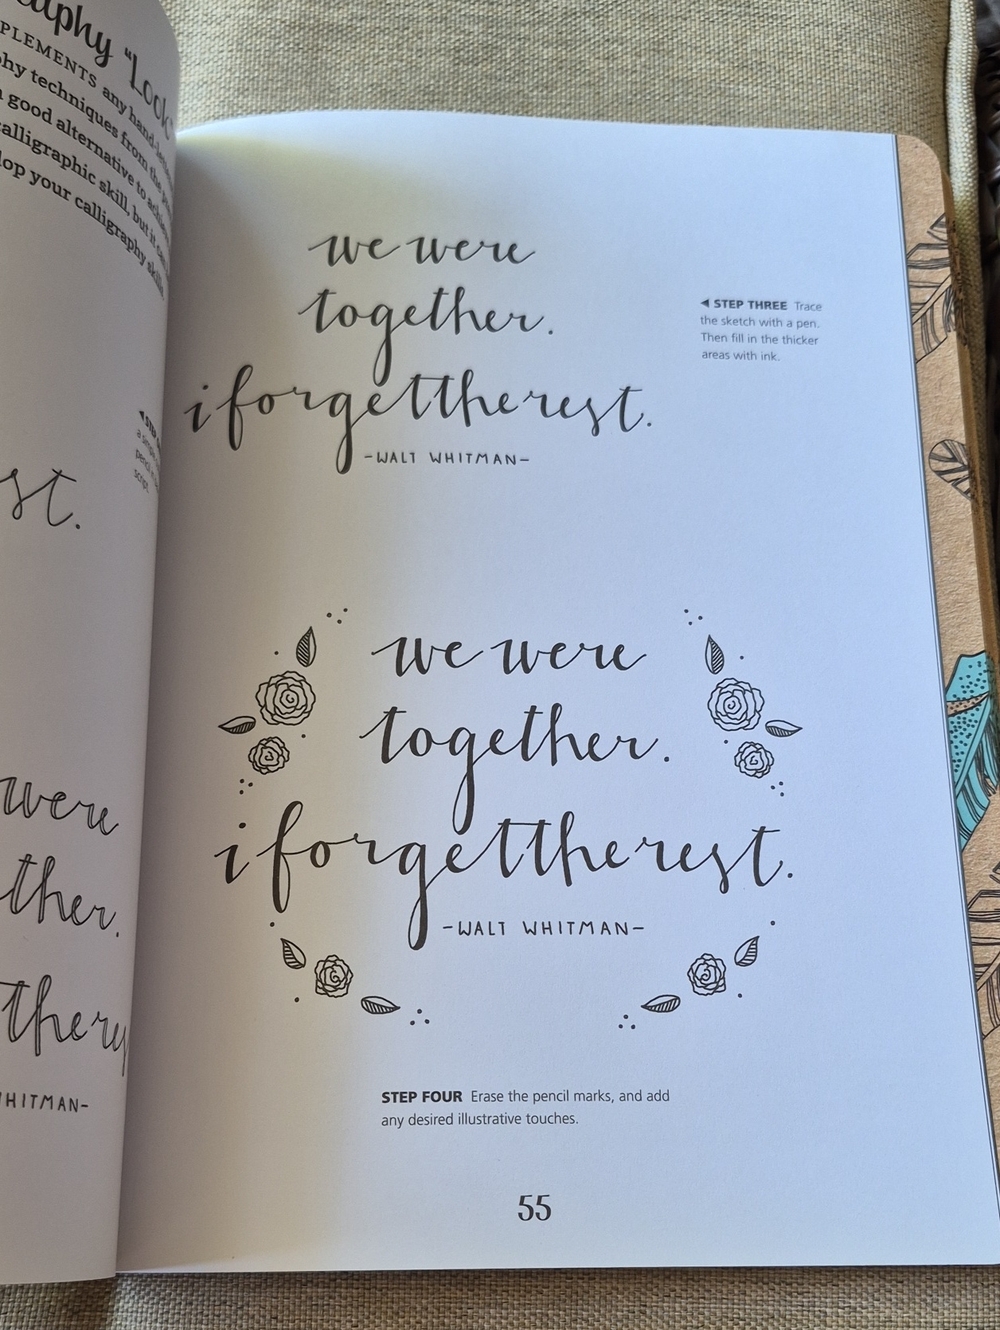 "Look"
PLEMENTS any hand-
hy techniques from the
good alternative to
calligraphic skill, but it
lop your calligraphy
st.
were
ther.
WHITMAN-
we were
together.
i forget the rest.
-WALT WHITMAN-
◀ STEP THREE Trace
the sketch with a pen.
Then fill in the thicker
areas with ink.
we were
together.
i forget the rest.
-WALT WHITMAN-
STEP FOUR Erase the pencil marks, and add
any desired illustrative touches.
55